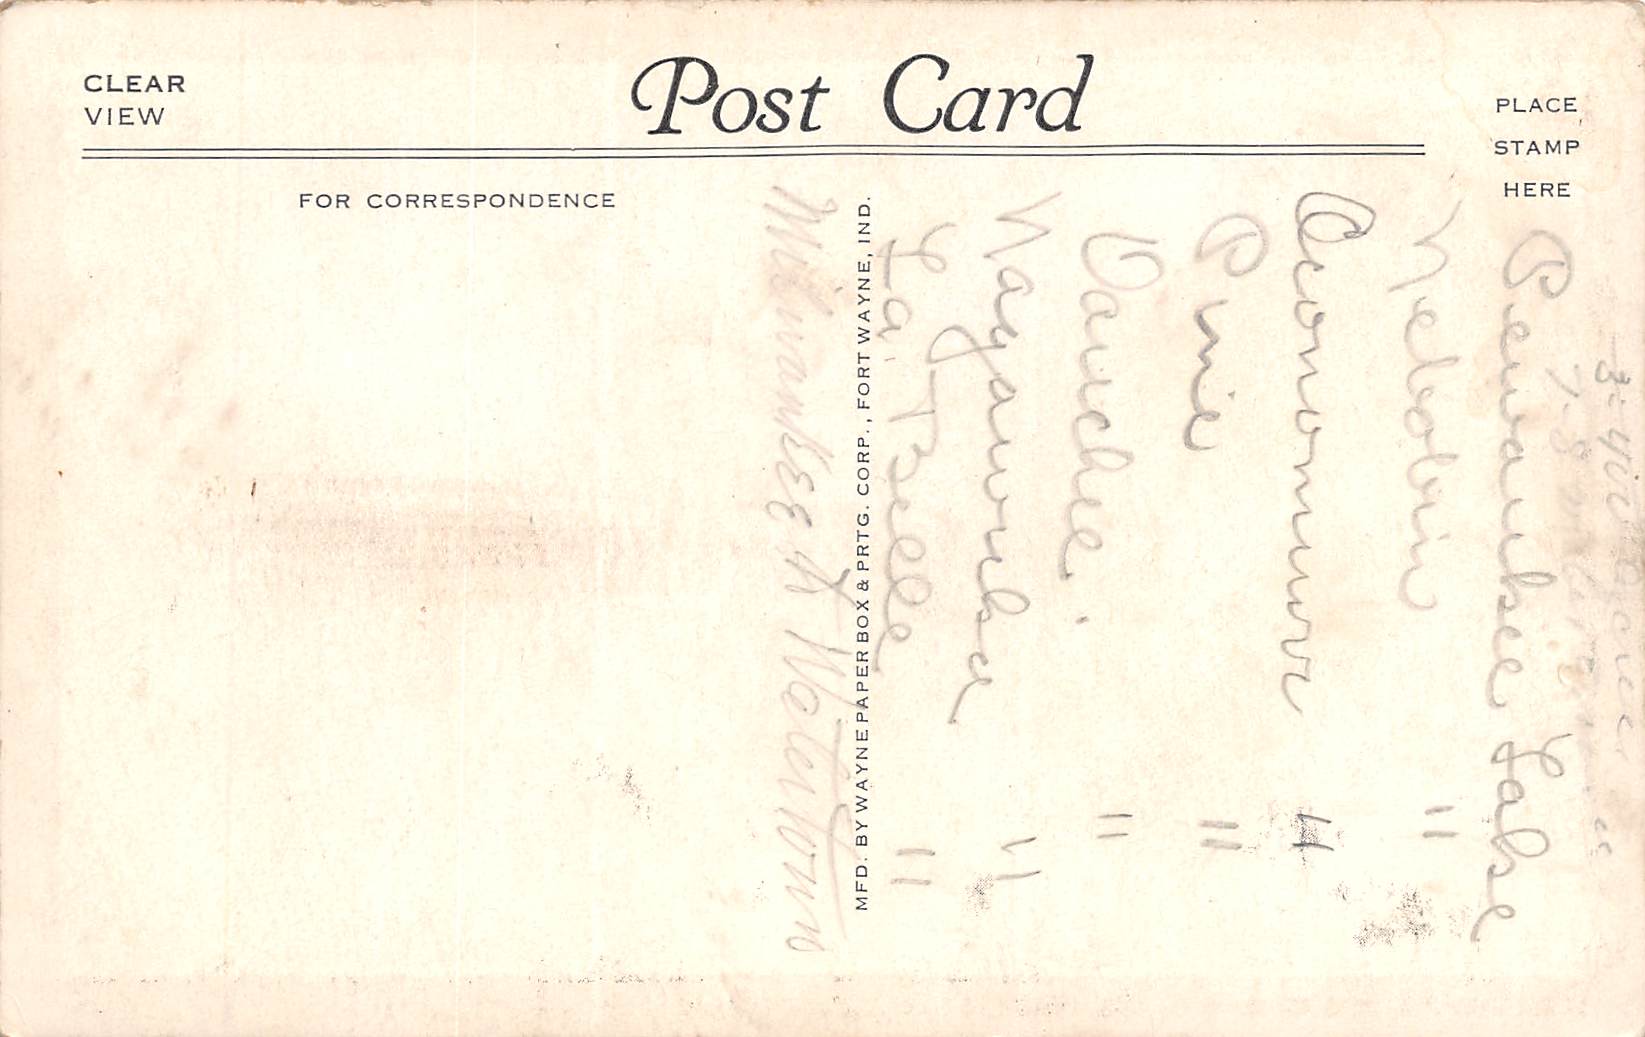 CLEAR
VIEW
Post Card
PLACE
STAMP
HERE
FOR CORRESPONDENCE
MFD. BY WAYNE PAPER BOX & PRTG. CORP., FORT WAYNE, IND.
Pewaukee Lake
"
Oconomowoc "
Pine "
"
Nagawicka "
La Belle "
Milwaukee to Watertown